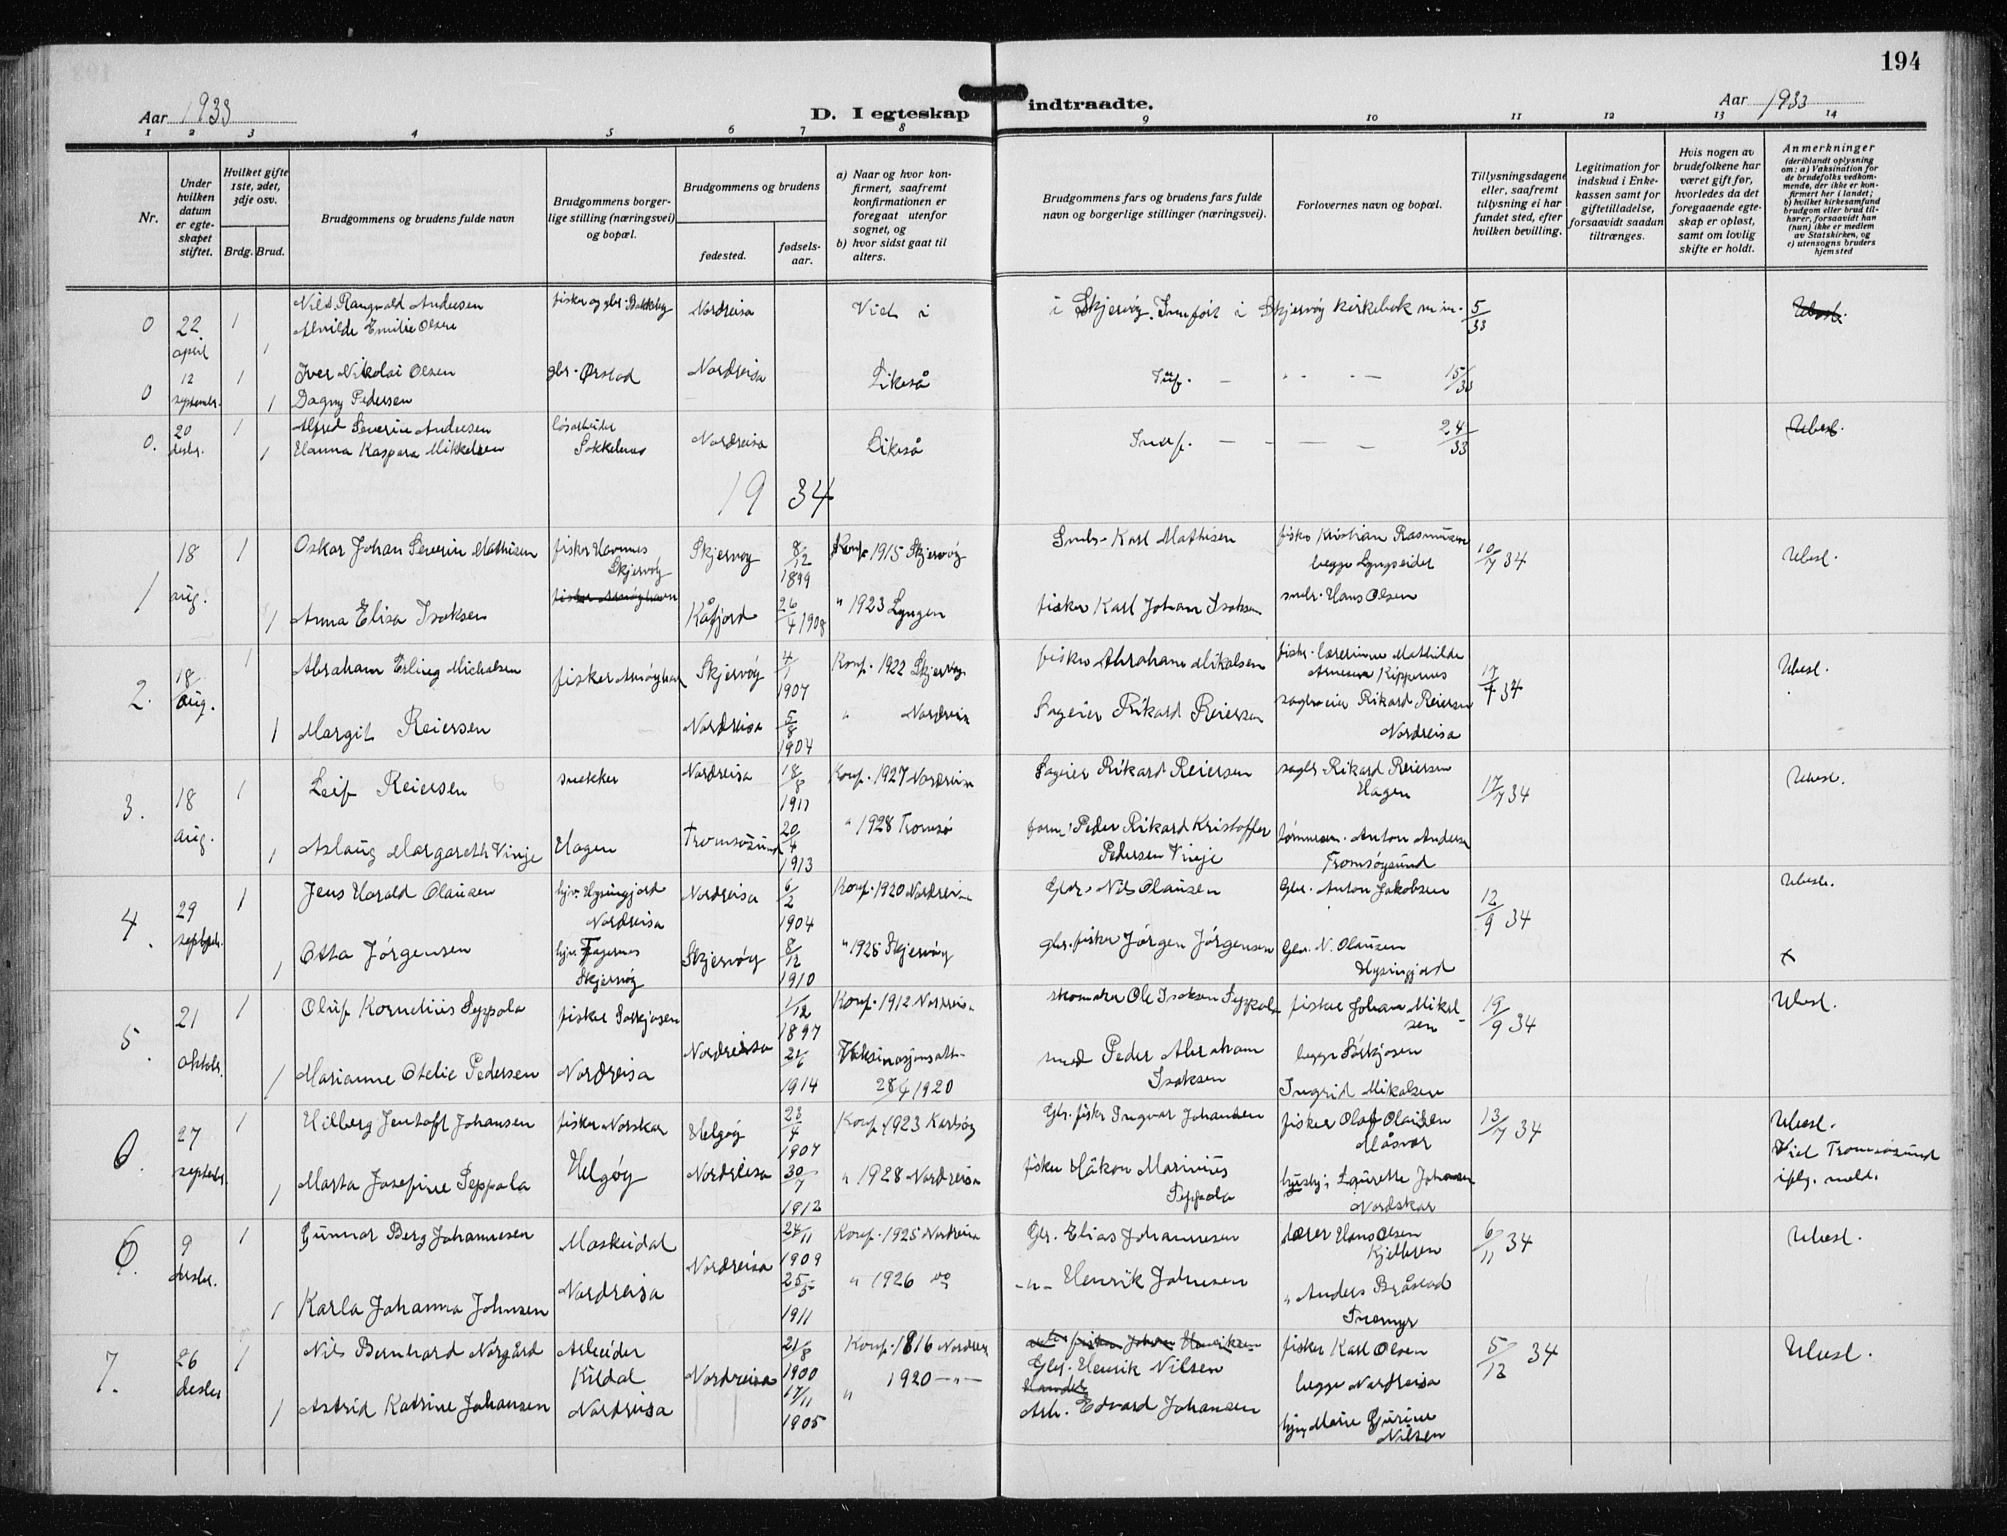 194
Aar 1933
D. I egteskap indtraadte.
Aar 1933
1 2 3 4 5 6 7 8 9 10 11 12 13 14
Nr.
Under hvilken datum er egteskapet stiftet.
Hvilket gifte 1ste, 2det, 3dje osv.
Brdg. Brud.
Brudgommens og brudens fulde navn
Brudgommens borgerlige stilling (næringsvei) og bopæl.
Brudgommens og brudens
fødested.
fødselsaar.
a) Naar og hvor konfirmert, saafremt konfirmationen er foregaat utenfor sognet, og
b) hvor sidst gaat til alters.
Brudgommens fars og brudens fars fulde navn og borgerlige stillinger (næringsvei).
Forlovernes navn og bopæl.
Tillysningsdagene eller, saafremt tillysning ei har fundet sted, efter hvilken bevilling.
Legitimation for indskud i Enkekassen samt for giftetilladelse, forsaavidt saadan tiltrænges.
Hvis nogen av brudefolkene har været gift før, hvorledes da det foregaaende egteskap er opløst, samt om lovlig skifte er holdt.
Anmerkninger
(deriblandt oplysning om: a) Vaksination for de brudefolks vedkommende, der ikke er konfirmert her i landet;
b) hvilket kirkesamfund brudgom eller brud tilhører, forsaavidt han (hun) ikke er medlem av Statskirken, og
c) utensogns bruders hjemsted
0 22 april 1 Nils Rangvald Andersen fisker og gbr. Bakkeby Nordreisa Viet i i Skjervøy. Innført i Skjervøy kirkebok nr 5/33 Ubesl.
1 Alvilde Emilie Olsen
0 12 septembr. 1 Iver Nikolai Olsen gbr. Ørstad Nordreisa Likeså Inf. — — 15/33
1 Dagny Pedersen
0. 20 desbr. 1 Alfred Severin Andersen løsarbeider Nordreisa Likeså Innf. — — — 24/33 Ubesl.
1 Hanna Kaspara Mikkelsen Sokkelnes
1934
1 18 aug. 1 Oskar Johan Severin Mathisen fisker Havnnes Skjervøy Skjervøy 8/12 1899 Konf. 1915 Skjervøy Småbr. Karl Mathisen fisker Kristian Rasmussen begge Lyngseidet 10/7 34 Ubesl.
fisker Arnøyhavn
1 Anna Elisa Isaksen Kåfjord 26/4 1908 " 1923 Lyngen fisker Karl Johan Isaksen småbr. Hans Olsen
2. 18 aug. 1 Abraham Erling Michalsen fisker Arnøyhavn Skjervøy 4/1 1907 Konf. 1922 Skjervøy fisker Abraham Mikalsen fisker. lærerinne Mathilde Arnesen Kippernes 17/7 34 Ubesl.
1 Margit Reiersen Nordreisa 5/8 1904 " Nordreisa Sageier Rikard Reiersen sagbr.eier Rikard Reiersen Nordreisa
3. 18 aug. 1 Leif Reiersen snekker Nordreisa 18/8 1911 Konf. 1927 Nordreisa Sageier Rikard Reiersen sagbr Rikard Reiersen Hagen 17/7 34 Ubesl.
1 Aslaug Margareth Vinje Hagen Tromsøsund 20/4 1913 " 1928 Tromsø form. Peder Rikard Kristoffer Pedersen Vinje tømmerm. Anton Andersen Tromsøysund
4. 29 septbr. 1 Jens Harald Olaussen hjv. Hysingjord Nordreisa Nordreisa 6/2 1904 Konf. 1920 Nordreisa Gbr. Nils Olaussen Gbr. Anton Jakobsen 12/9 34 Ubesl.
1 Otta Jørgensen hjv. Fagernes Skjervøy Skjervøy 8/12 1910 " 1925 Skjervøy gbr. fisker Jørgen Jørgensen Gbr. N. Olaussen Hysingjord x
5. 21 oktobr. 1 Oluf Kornelius Seppola fisker Sørkjosen 1/12 1897 Konf. 1912 Nordreisa skomaker Ole Isaksen Seppola fisker Johan Mikalsen 19/9 34 Ubesl.
1 Marianne Otelie Pedersen Nordreisa Nordreisa 21/6 1914 Vaksinasjonsatt. 28/4 1920 smed Peder Abraham Isaksen begge Sørkjosen Ingrid Mikalsen
6. 27 septbr. 1 Hilberg Jentoft Johansen fisker Norskar Helgøy 23/4 1907 Konf. 1923 Karlsøy Gbr. fisker Ingvar Johansen fisker Olaf Olaussen Måsvær 13/7 34 Ubesl.
Viet Tromsøsund ifølg. meld.
1 Marta Josefine Seppola Helgøy Nordreisa 30/7 1912 " 1928 Nordreisa fisker Håkon Marinius Seppola husby. Laurette Johansen Nordskar
6. 9 desbr. 1 Gunnar Berg Johannesen Moskeidal 24/11 1909 Konf. 1925 Nordreisa Gbr. Elias Johannesen lærer Hans Olsen Kjelleren 6/11 34 Ubesl.
1 Karla Johanna Johnsen Nordreisa Nordreisa 25/5 1911 " 1926 do — " — Henrik Johnsen " Anders Bråstad
7. 26 desbr 1 Nils Bernhard Norgård Arbeider Kildal 21/8 1900 Konf. 1816 Nordreisa fisker Johan Henriksen Gbr. Henrik Nilsen fisker Karl Olsen 5/12 34 Ubesl.
1 Astrid Katrine Johansen Nordreisa Nordreisa 17/11 1905 " 1920 — " — Arb. Edvard Johansen begge Nordreisa hjv. Marie Gurine Nilsen